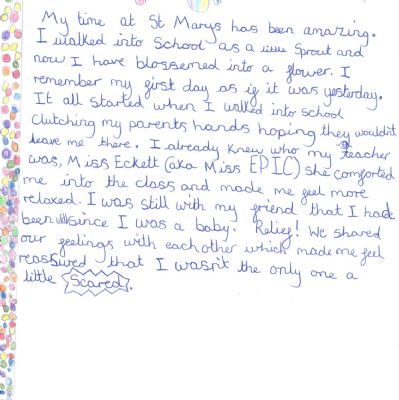 My time at St Marys has been amazing.
I walked into School as a little Sprout and
now I have blossemed into a flower. I
remember my first day as if it was yesterday.
It all started when I walked into school
clutching my parents hands hoping they wouldn't
leave me there. I already knew who my teacher
was, Miss Eckett (aka Miss EPIC) she comforted
me into the class and made me feel more
relaxed. I was still with my friend that I had
been with since I was a baby. Relief! We shared
our feelings with each other which made me feel
reassured that I wasn't the only one a
little Scared.